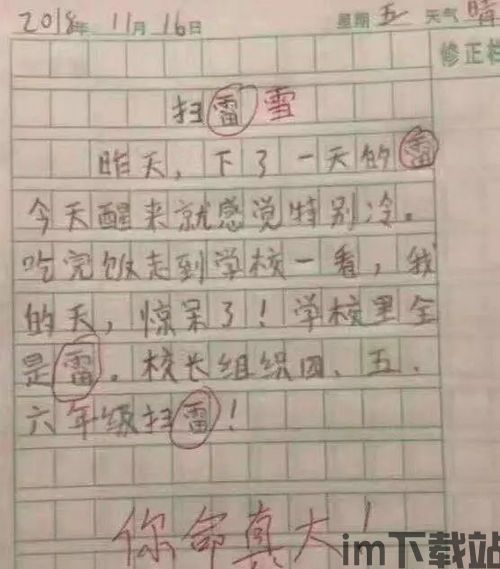 2018年 11月 16日 星期 五 天气 晴
修正栏
扫雷 雪
昨天，下了一天的雷
今天醒来就感觉特别冷。
吃完饭走到学校一看，我
的天，惊呆了！学校里全
是雷。校长组织四、五、
六年级扫雷！
你命真大！
im下载站